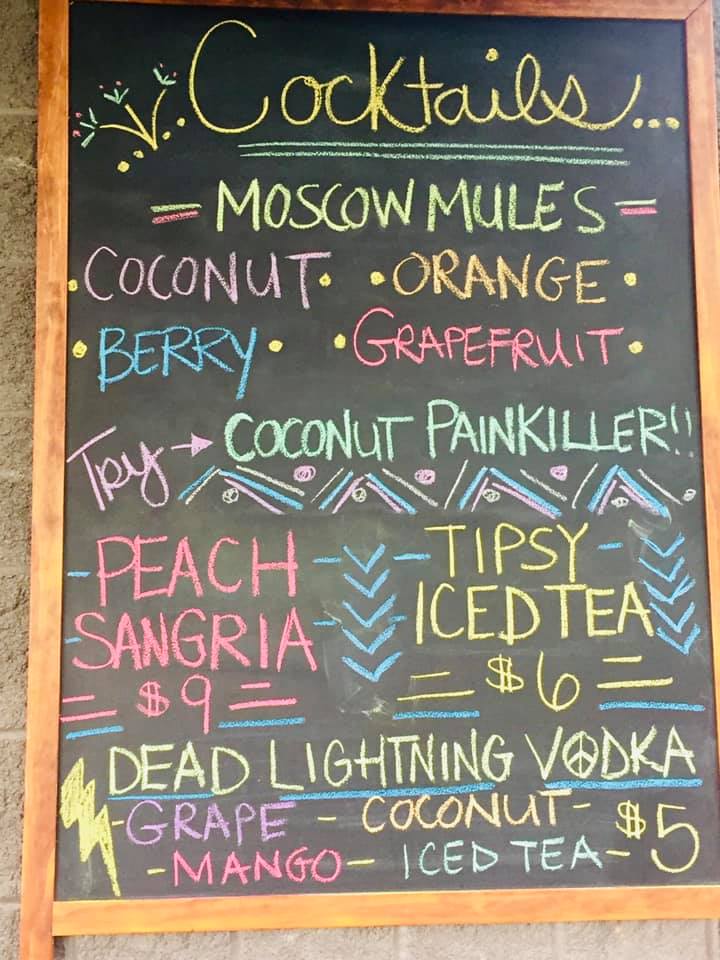 Cocktails...
- MOSCOW MULES -
• COCONUT • • ORANGE •
• BERRY • • GRAPEFRUIT •
Try → COCONUT PAINKILLER!!
- PEACH -
- SANGRIA -
= $9 =
- TIPSY -
ICED TEA
= $6 =
DEAD LIGHTNING VODKA
- GRAPE - COCONUT - $5
- MANGO - ICED TEA -